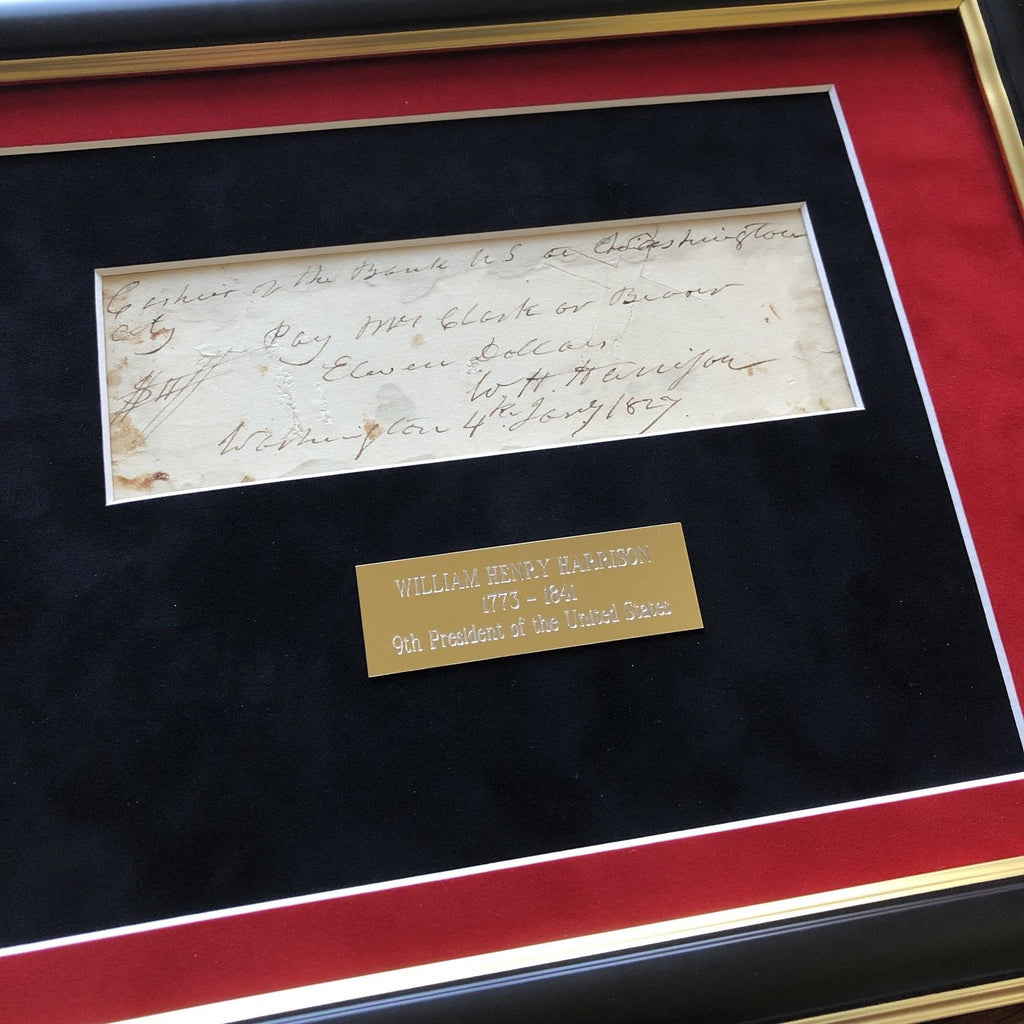 Cashier of the Bank US at Washington
City
Pay Mr Clark or Bearer
$11
Eleven Dollars
W. H. Harrison
Washington 4th Jany 1827.
WILLIAM HENRY HARRISON
1773 - 1841
9th President of the United States